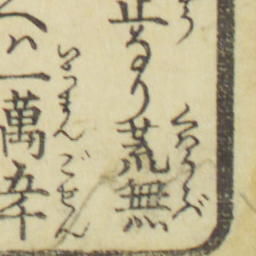 止なり荒無
くわうぶ
八一萬五千
いちまんごせん